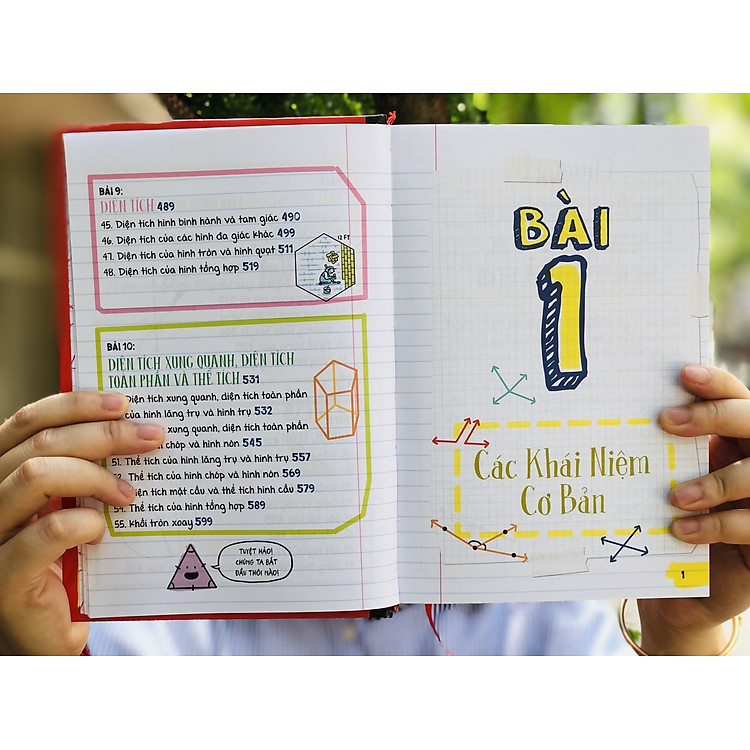 BÀI 9:
DIỆN TÍCH 489
45. Diện tích hình bình hành và tam giác 490
46. Diện tích của các hình đa giác khác 499
47. Diện tích của hình tròn và hình quạt 511
48. Diện tích của hình tổng hợp 519
12 FT
BÀI 10:
DIỆN TÍCH XUNG QUANH, DIỆN TÍCH
TOÀN PHẦN VÀ THỂ TÍCH 531
Diện tích xung quanh, diện tích toàn phần
của hình lăng trụ và hình trụ 532
xung quanh, diện tích toàn phần
chóp và hình nón 545
51. Thể tích của hình lăng trụ và hình trụ 557
52. Thể tích của hình chóp và hình nón 569
Diện tích mặt cầu và thể tích hình cầu 579
54. Thể tích của hình tổng hợp 589
55. Khối tròn xoay 599
TUYỆT HẢO!
CHÚNG TA BẮT
ĐẦU THÔI NÀO!
BÀI
1
Các Khái Niệm
Cơ Bản
1